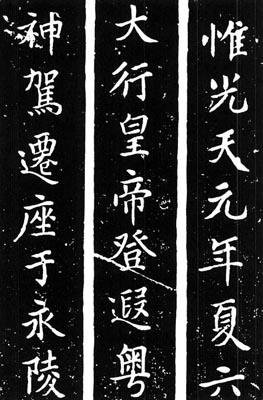 惟光天元年夏六
大行皇帝登遐粤
神駕遷座于永陵